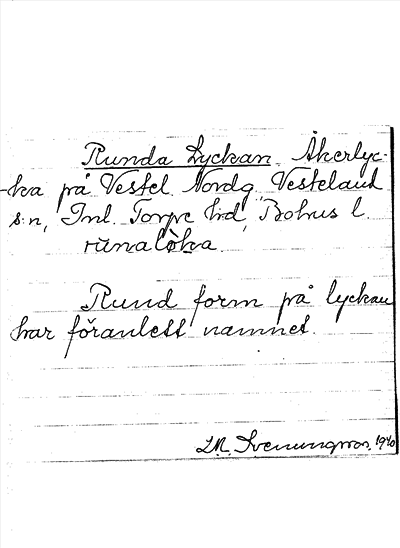 Runda Lyckan. Åkerlyc-
-ka på Vestel Nordg, Vesteland
s:n, Inl. Torpe hd, Bohus l.
rŭnalø̀ka.
Rund form på lyckan
har föranlett namnet.
L.M. Svenungsson. 1940